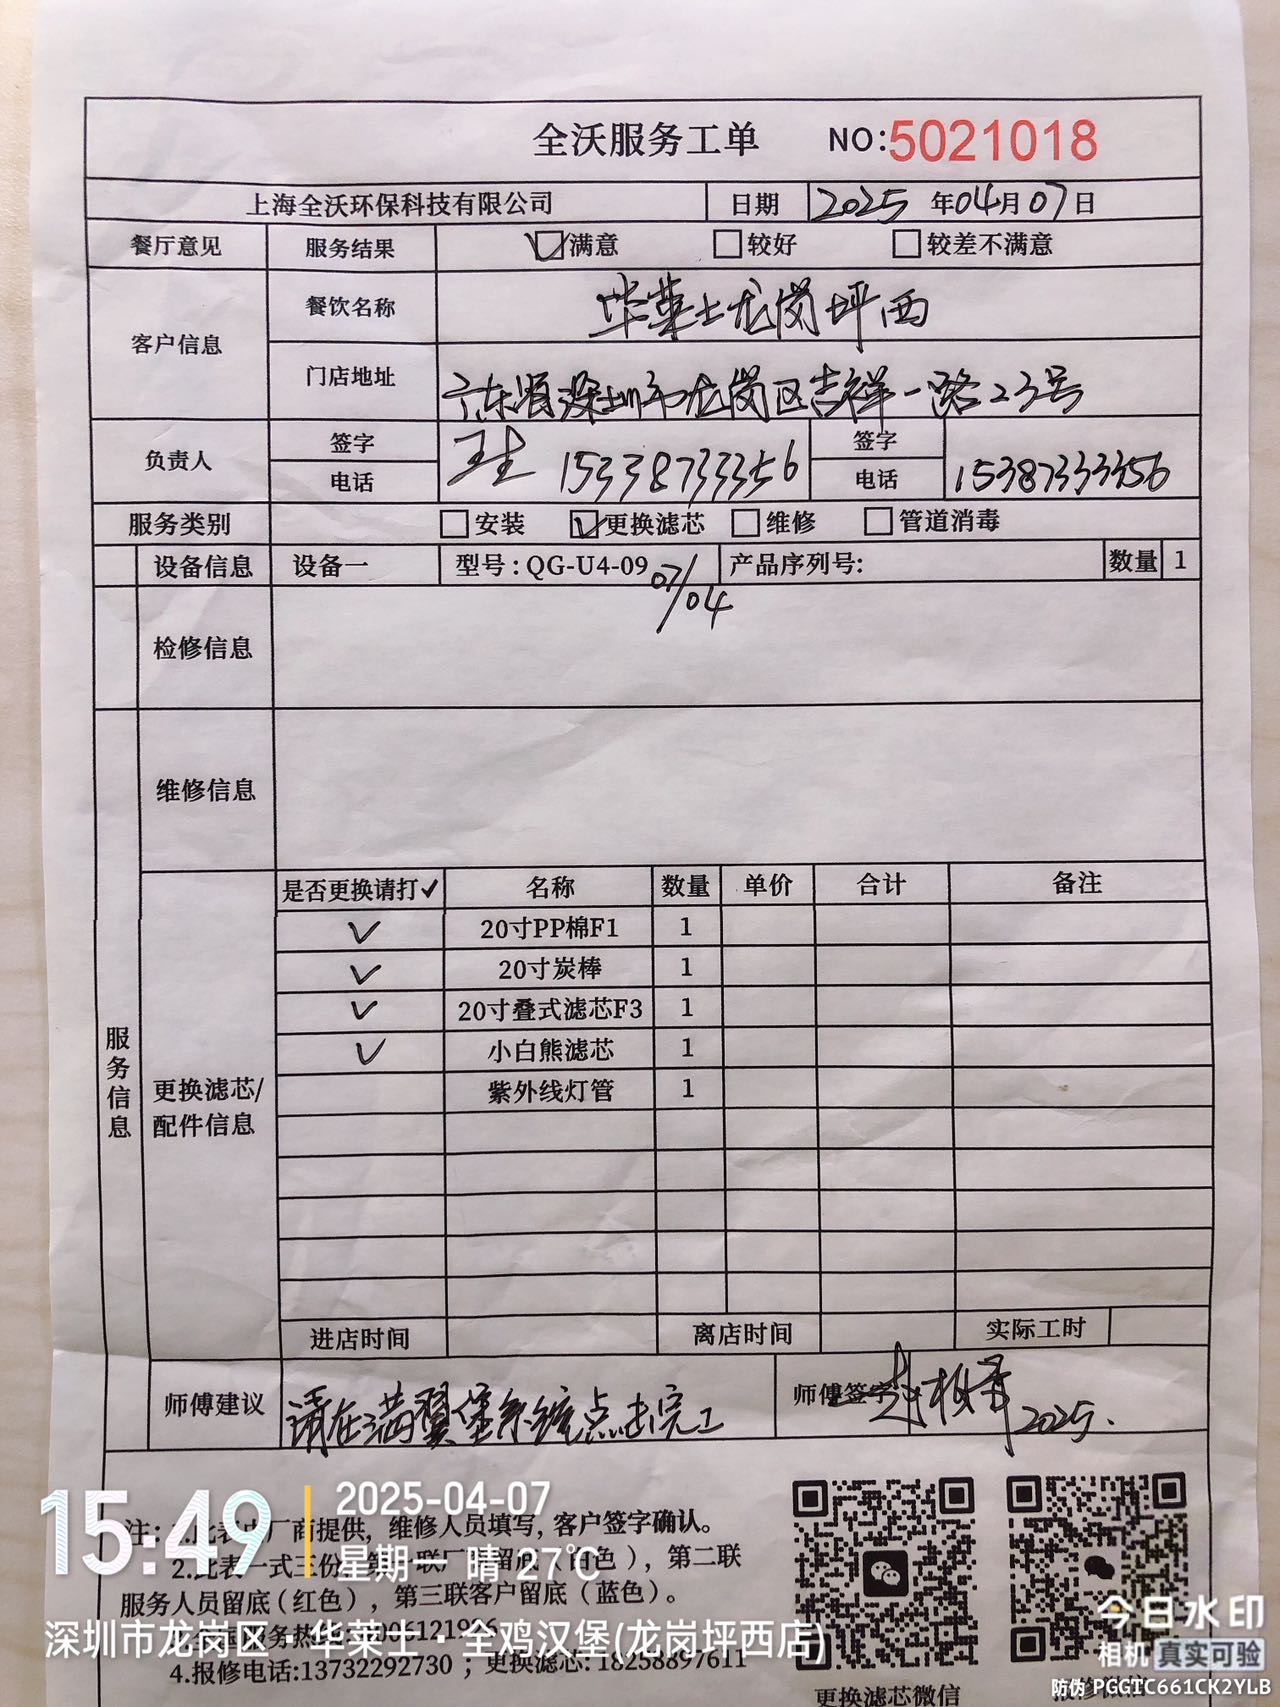 全沃服务工单 NO:5021018
上海全沃环保科技有限公司 日期 2025 年04月07日
餐厅意见 服务结果 满意 较好 较差不满意
客户信息 餐饮名称 华莱士龙岗坪西
门店地址 广东省深圳市龙岗区吉祥一路23号
负责人 签字 15338733356 签字
电话 电话 15387333356
服务类别 安装 更换滤芯 维修 管道消毒
设备信息 设备一 型号:QG-U4-09 产品序列号: 数量 1
07/04
检修信息
维修信息
服务信息
更换滤芯/
配件信息
是否更换请打✓ 名称 数量 单价 合计 备注
✓ 20寸PP棉F1 1
✓ 20寸炭棒 1
✓ 20寸叠式滤芯F3 1
✓ 小白熊滤芯 1
紫外线灯管 1
进店时间 离店时间 实际工时
师傅建议 请在满翼堡系统点击完工 师傅签字 2025.
注: 1.此表由厂商提供, 维修人员填写, 客户签字确认。
2.此表一式三份, 第一联厂商留底(白色), 第二联
服务人员留底(红色), 第三联客户留底(蓝色)。
4.报修电话:13732292730 ; 更换滤芯: 18258897611
更换滤芯微信
15:49
2025-04-07
星期一 晴 27℃
深圳市龙岗区·华莱士·全鸡汉堡(龙岗坪西店)
今日水印
相机 真实可验
防伪 PGGTC661CK2YLB